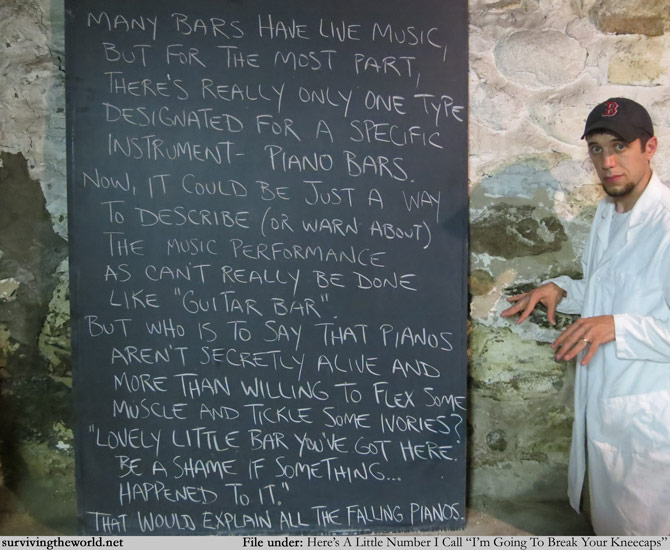 MANY BARS HAVE LIVE MUSIC,
BUT FOR THE MOST PART,
THERE'S REALLY ONLY ONE TYPE
DESIGNATED FOR A SPECIFIC
INSTRUMENT- PIANO BARS.
NOW, IT COULD BE JUST A WAY
TO DESCRIBE (OR WARN ABOUT)
THE MUSIC PERFORMANCE
AS CAN'T REALLY BE DONE
LIKE "GUITAR BAR".
BUT WHO IS TO SAY THAT PIANOS
AREN'T SECRETLY ALIVE AND
MORE THAN WILLING TO FLEX SOME
MUSCLE AND TICKLE SOME IVORIES?
"LOVELY LITTLE BAR YOU'VE GOT HERE.
BE A SHAME IF SOMETHING...
HAPPENED TO IT."
THAT WOULD EXPLAIN ALL THE FALLING PIANOS.
B
survivingtheworld.net File under: Here's A Little Number I Call "I'm Going To Break Your Kneecaps"